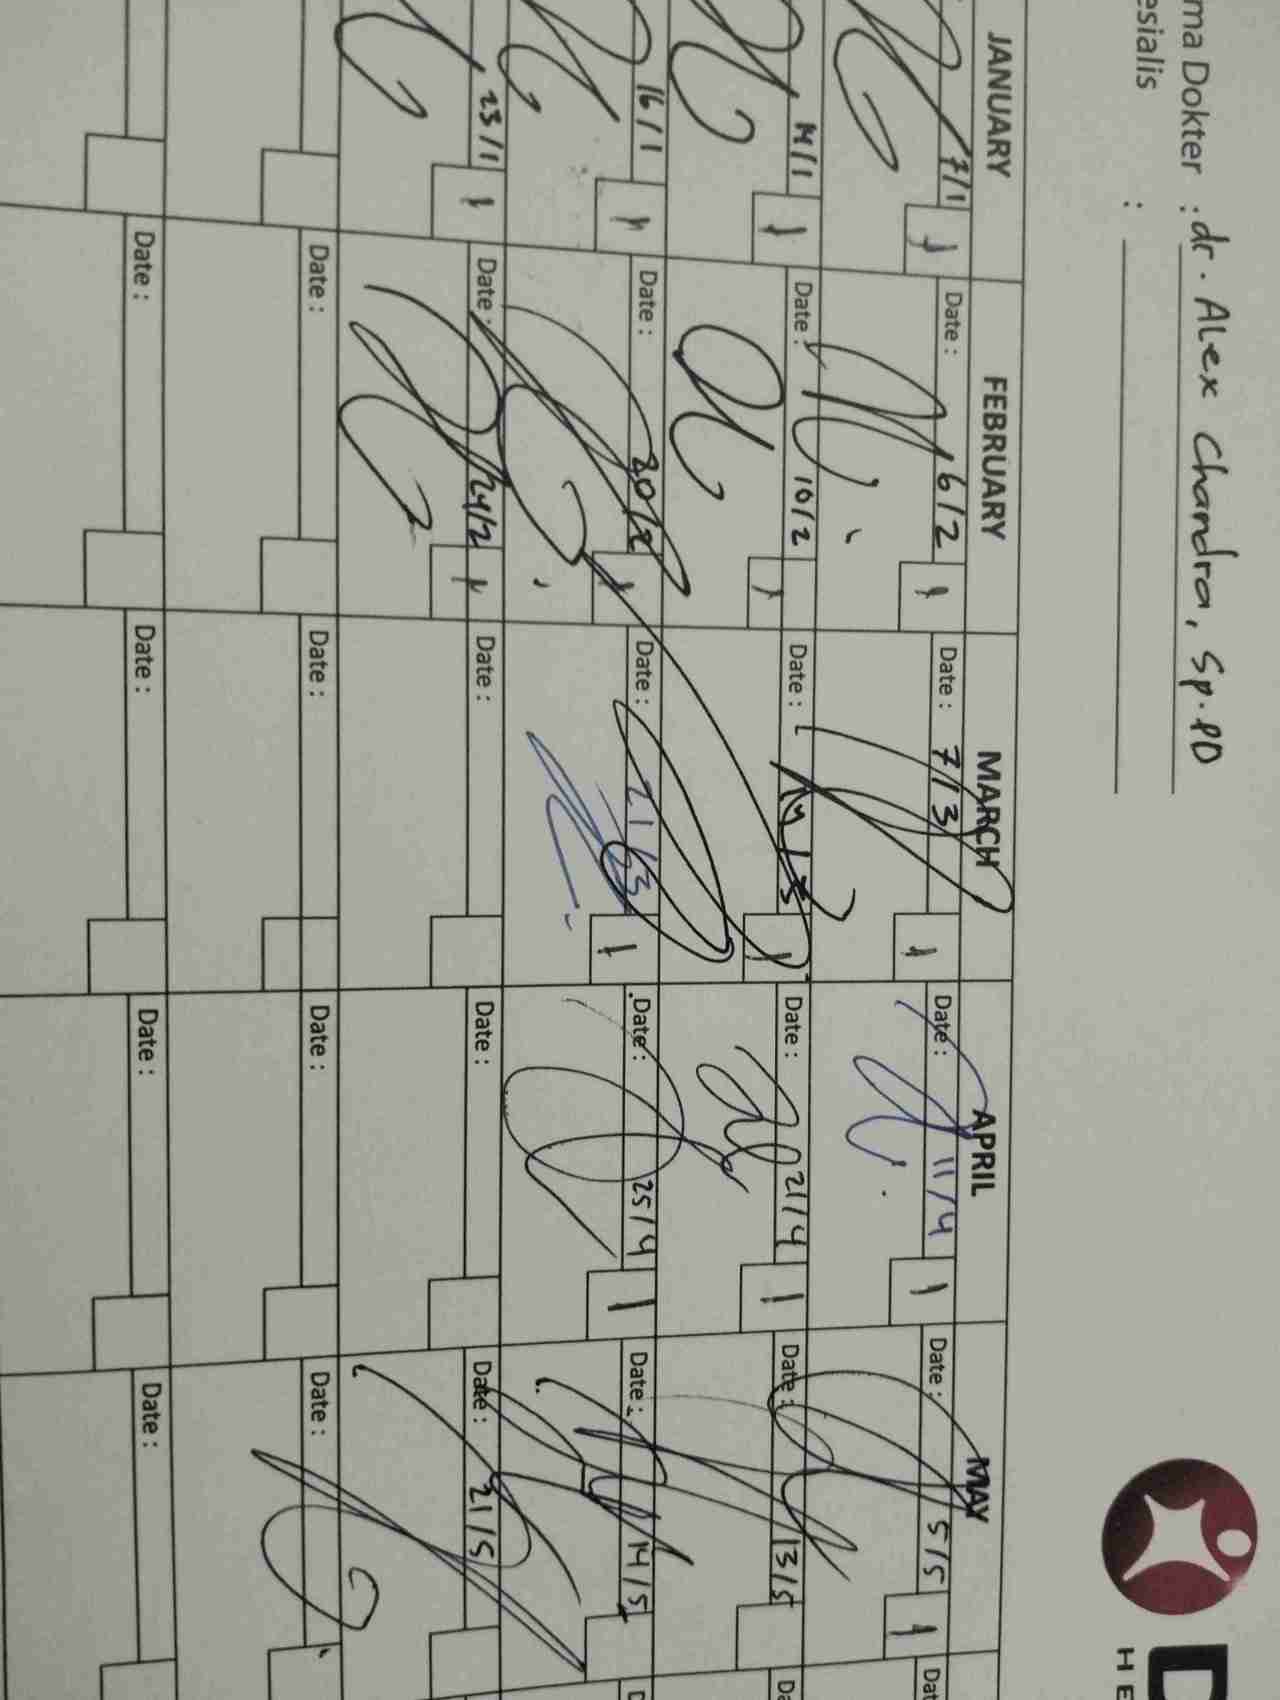 ma Dokter : dr. Alex Chandra, Sp.PD
esialis :
D
HE
JANUARY FEBRUARY MARCH APRIL MAY
7/1 1 Date : 6/2 1 Date : 7/3 1 Date : 11/4 1 Date : 5/5 1 Dat
14/1 1 Date : 10/2 1 Date : 14/3 1 Date : 21/4 1 Date : 13/5 Da
16/1 1 Date : 20/2 1 Date : 21/3 1 Date : 25/4 1 Date : 14/5 D
23/1 1 Date : 24/2 1 Date : Date : Date : 21/5
Date : Date : Date : Date :
Date : Date : Date : Date :